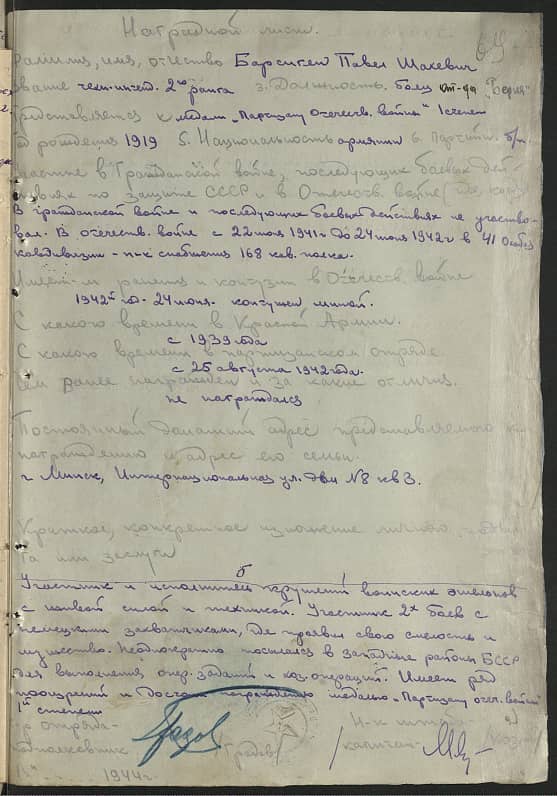 Наградной лист.
69
Фамилия, имя, отчество Барсигян Павел Шакевич
звание техн.-интенд. 2го ранга 3. Должность. боец от-да "Берия"
представляется к медали „Партизану Отечеств. войны" I степен
год рождения 1919 5. Национальность армянин 6. Партийн. б/п.
участие в Гражданской войне, последующих боевых дей-
ствиях по защите СССР и в Отечеств. войне (где, когда)
В гражданской войне и последующих боевых действиях не участво-
вал. В отечеств. войне с 22 июня 1941 г до 24 июня 1942 г в 41 отдел
кавдивизии - н-к снабжения 168 кав. полка.
Имеет-ли ранения и контузии в Отечеств. войне
1942й год. 24 июня. контужен миной.
С какого времени в Красной Армии.
с 1939 года
С какого времени в партизанском отряде
с 25 августа 1942 года.
Чем ранее награжден и за какие отличия.
не награждался
Постоянный домашний адрес представляемого к
награждению и адрес его семьи.
г Минск, Интернациональная ул. дом №8 кв 3.
Краткое, конкретное изложение личного подви
га или заслуги
Участник и исполнитель крушений воинских эшелонов
с живой силой и техникой. Участник 2х боев с
немецкими захватчиками, где проявил свою смелость и
мужество. Неоднократно посылался в западные районы БССР
для выполнения опер. заданий и хоз. операций. Имеет ряд
поощрений и достоин награждению медалью „Партизану отеч. войны"
1й степени
-р отряда-
Н-к штаба-
подполковник /Градов/
/капитан-
1944 г.